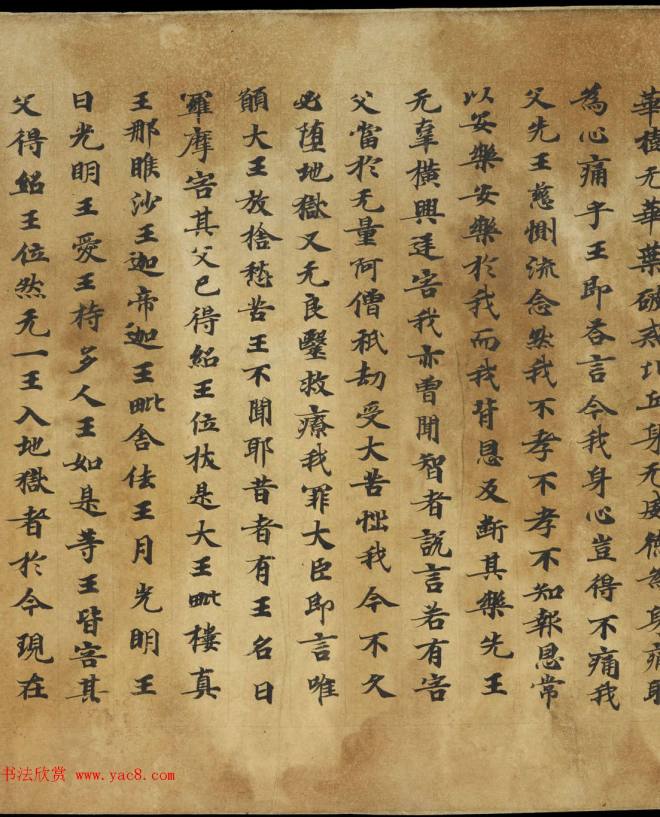 華樹无華葉破戒比丘身无威德為身痛耶
為心痛乎王即荅言今我身心豈得不痛我
父先王慈惻流念然我不孝不孝不知報恩常
以安樂安樂於我而我背恩反断其樂先王
无辜横興逆害我亦曾聞智者說言若有害
父當於无量阿僧祇劫受大苦惱我今不久
必堕地獄又无良毉救療我罪大臣即言唯
願大王放捨愁苦王不聞耶昔者有王名曰
羅摩害其父已得紹王位拔是大王毗樓真
王那睺沙王迦帝迦王毗舍佉王月光明王
日光明王愛王持多人王如是等王皆害其
父得紹王位然无一王入地獄者於今現在
书法欣赏 www.yac8.com